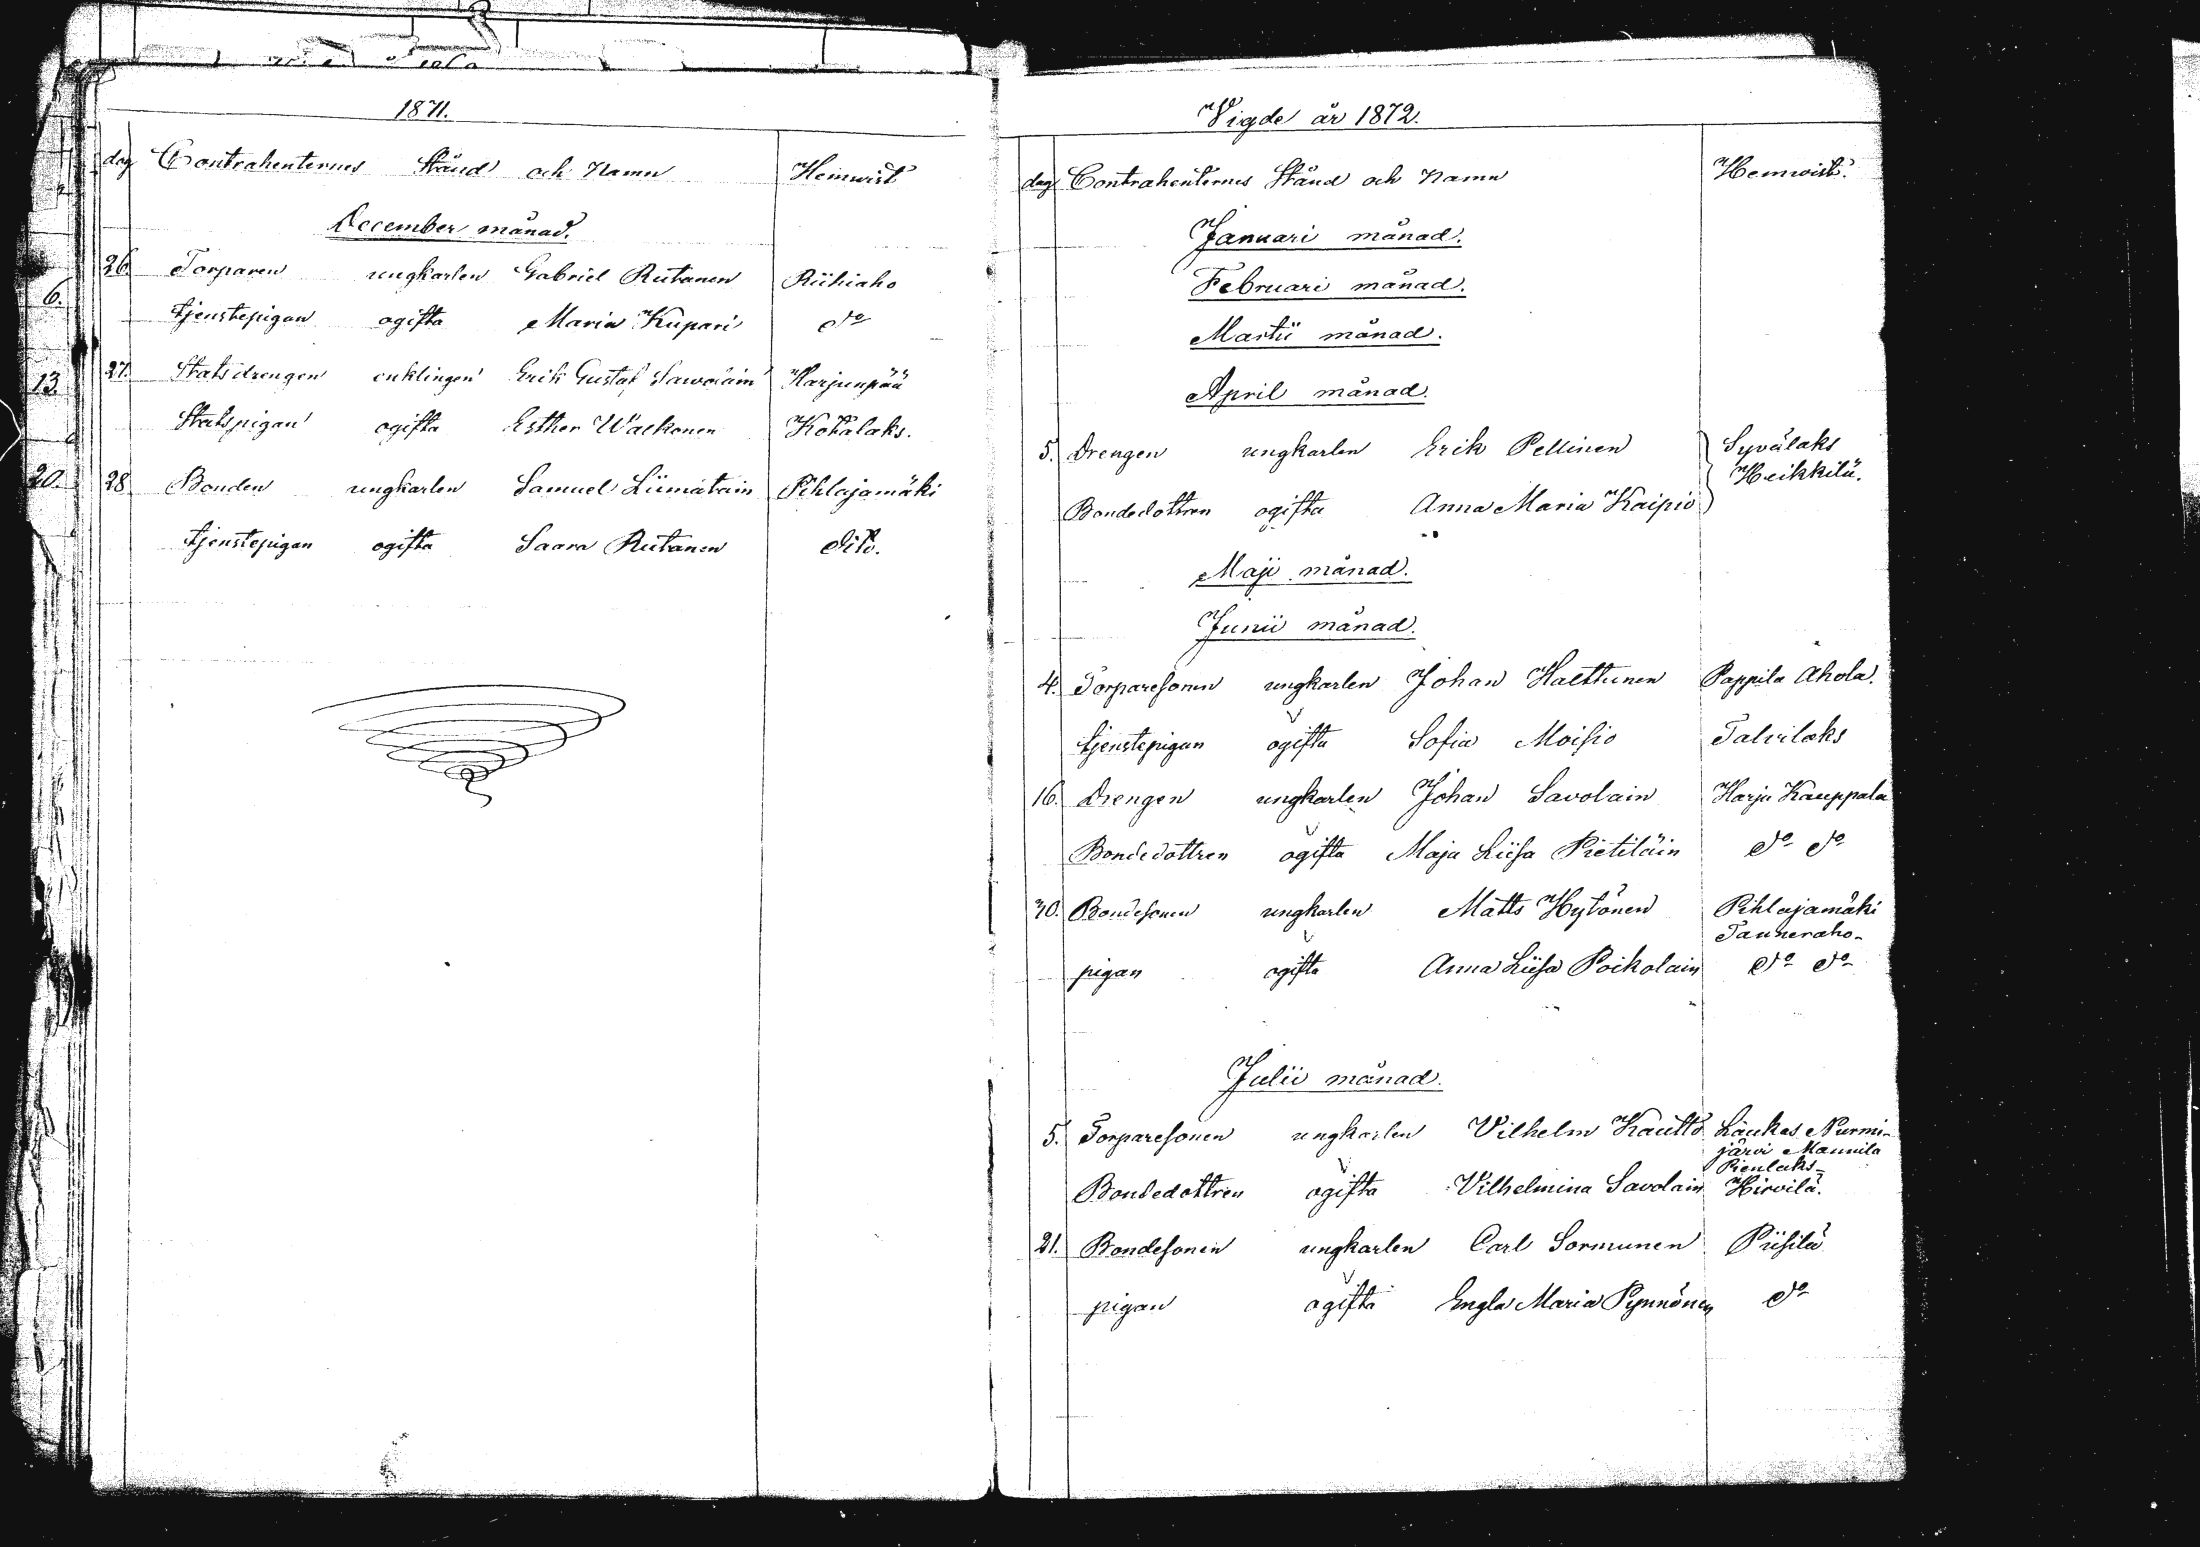 1871.
dag Contrahenternes Stånd och Namn Hemwist
December månad.
26. Torparen ungkarlen Gabriel Rutanen Riihiaho
tjenstepigan ogifta Maria Kupari do
27. Statsdrengen enklingen Erik Gustaf Sawolain Harjunpää
Statspigan ogifta Esther Waekonen Kokalaks.
28. Bonden ungkarlen Samuel Liimatain Pihlajamäki
tjenstepigan ogifta Saara Rutanen dito.
6.
13.
20.
Vigde år 1872.
dag Contrahenternes Stånd och Namn Hemwist.
Januari månad.
Februari månad.
Martii månad.
April månad.
5. Drengen ungkarlen Erik Pellinen Syvälaks
Heikkilä.
Bondedottren ogifta Anna Maria Kaipio
Maji månad.
Junii månad.
4. Torparesonen ungkarlen Johan Haettunen Pappila Ahola.
tjenstepigan ogifta Sofia Moisio Talvilaks
16. Drengen ungkarlen Johan Savolain Harju Kauppala
Bondedottren ogifta Maja Liisa Pietiläin do do
30. Bondesonen ungkarlen Matts Hytönen Pihlajamäki
Tanneraho-
pigan ogifta Anna Liisa Poikolain do do
Julii månad.
5. Torparesonen ungkarlen Vilhelm Kautto Laukas Nurmi-
järvi Mannila
Pienlaks-
Bondedottren ogifta Vilhelmina Savolain Hirvilä.
21. Bondesonen ungkarlen Carl Sormunen Piisilä
pigan ogifta Engla Maria Pynnönen do